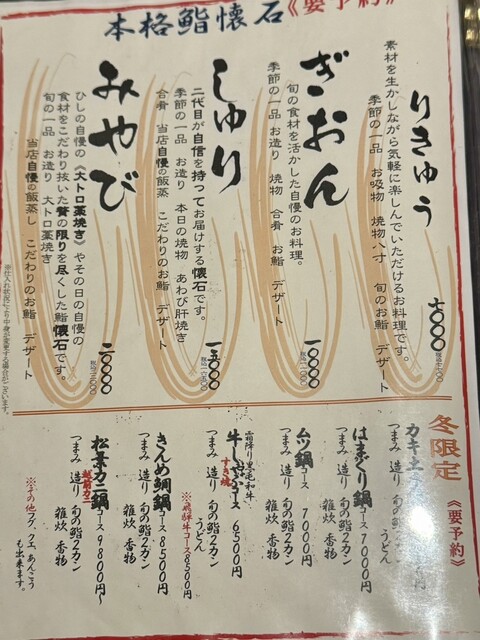 本格鮨懐石《要予約》
りきゅう
素材を生かしながら気軽に楽しんでいただけるお料理です。
季節の一品 お吸物 焼物八寸 旬のお鮨 デザート
七〇〇〇
ぎおん
旬の食材を活かした自慢のお料理。
季節の一品 お造り 焼物 合肴 お鮨 デザート
一〇〇〇〇
税込一一〇〇〇
しゅり
二代目が自信を持ってお届けする懐石です。
季節の一品 お造り 本日の焼物 あわび肝焼き
合肴 当店自慢の飯蒸 こだわりのお鮨 デザート
一五〇〇〇
税込一六五〇〇
みやび
ひしの自慢の《大トロ藁焼き》やその日の自慢の
食材をこだわり抜いた贅の限りを尽くした鮨懐石です。
旬の一品 お造り 大トロ藁焼き
当店自慢の飯蒸し こだわりのお鮨 デザート
二〇〇〇〇
税込二二〇〇〇
※仕入れ状況により中身が変更する場合がございます。
冬限定
《要予約》
カキ土
円
つまみ 造り 旬の鮨2カン
うどん
はまぐり鍋コース 7000円
つまみ 造り 旬の鮨2カン
雑炊 香物
ムツ鍋コース 7000円
つまみ 造り 旬の鮨2カン
雑炊 香物
霜降り黒毛和牛
牛しゃぶコース 6500円
すき焼
つまみ 造り 旬の鮨2カン
うどん
※飛騨牛コース8500円
きんめ鯛鍋コース 8500円
つまみ 造り 旬の鮨2カン
雑炊 香物
松葉カニ鍋コース 9800円〜
越前カニ
つまみ 造り 旬の鮨2カン
雑炊 香物
※その他フグ、クエ、あんこう
も出来ます。